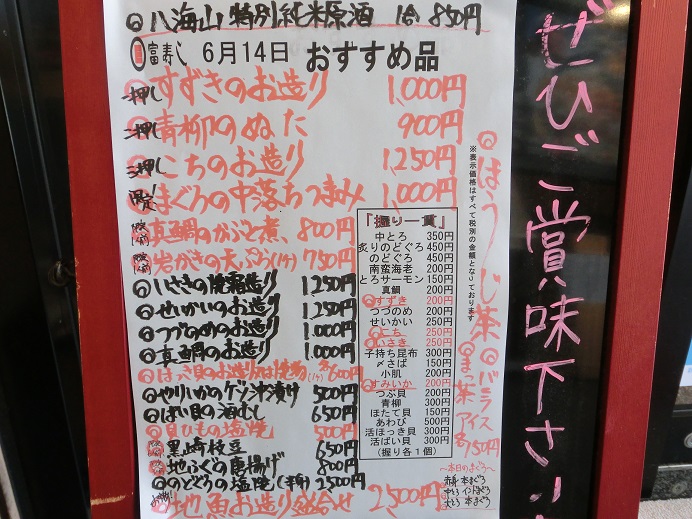 ◎八海山 特別純米原酒 1合 850円
富寿し 6月14日 おすすめ品
一押し すずきのお造り 1,000円
二押し 青柳のぬた 900円
三押し こちのお造り 1,250円
限定! まぐろの中落ちつまみ 1,000円
真鯛のかぶと煮 800円
岩がきの天ぷら(1ケ) 750円
◎いさきの焼霜造り 1,250円
◎せいかいのお造り 1,250円
◎つづのめのお造り 1,000円
◎真鯛のお造り 1,000円
◎ほっき貝のお造り又は焼物(1ケ) 600円
◎やりいかのゲソ沖漬け 500円
◎ばい貝の酒むし 650円
◎貝ひもの塩焼 500円
黒崎枝豆 500円
◎地ふぐの唐揚げ 800円
◎のどぐろの塩焼(半身) 2500円
地魚お造り盛合せ 2,500円
「握り一貫」
中とろ 350円
炙りのどぐろ 450円
のどぐろ 450円
南蛮海老 200円
とろサーモン 150円
真鯛 200円
◎すずき 200円
つづのめ 200円
せいかい 250円
◎こち 250円
◎いさき 250円
子持ち昆布 300円
〆さば 150円
小肌 200円
◎すみいか 200円
つぶ貝 200円
青柳 300円
ほたて貝 150円
あわび 500円
活ほっき貝 300円
活ばい貝 300円
(握り各1個)
※表示価格はすべて税別の金額となっております
◎ほうじ茶
◎バニラ
まっ茶 アイス
各150円
~本日のまぐろ~
赤身 本まぐろ
中とろ インドまぐろ
大とろ 本まぐろ
ぜひご賞味下さい